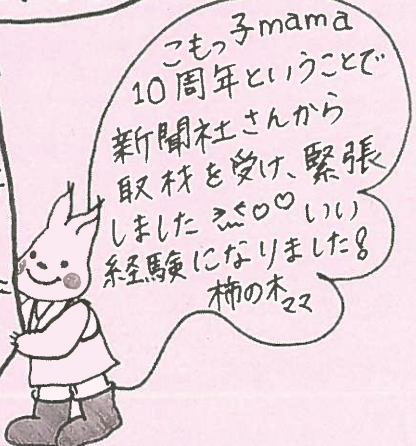 こもっ子mama
10周年ということで
新聞社さんから
取材を受け、緊張
しました いい
経験になりました!
柿の木ママ